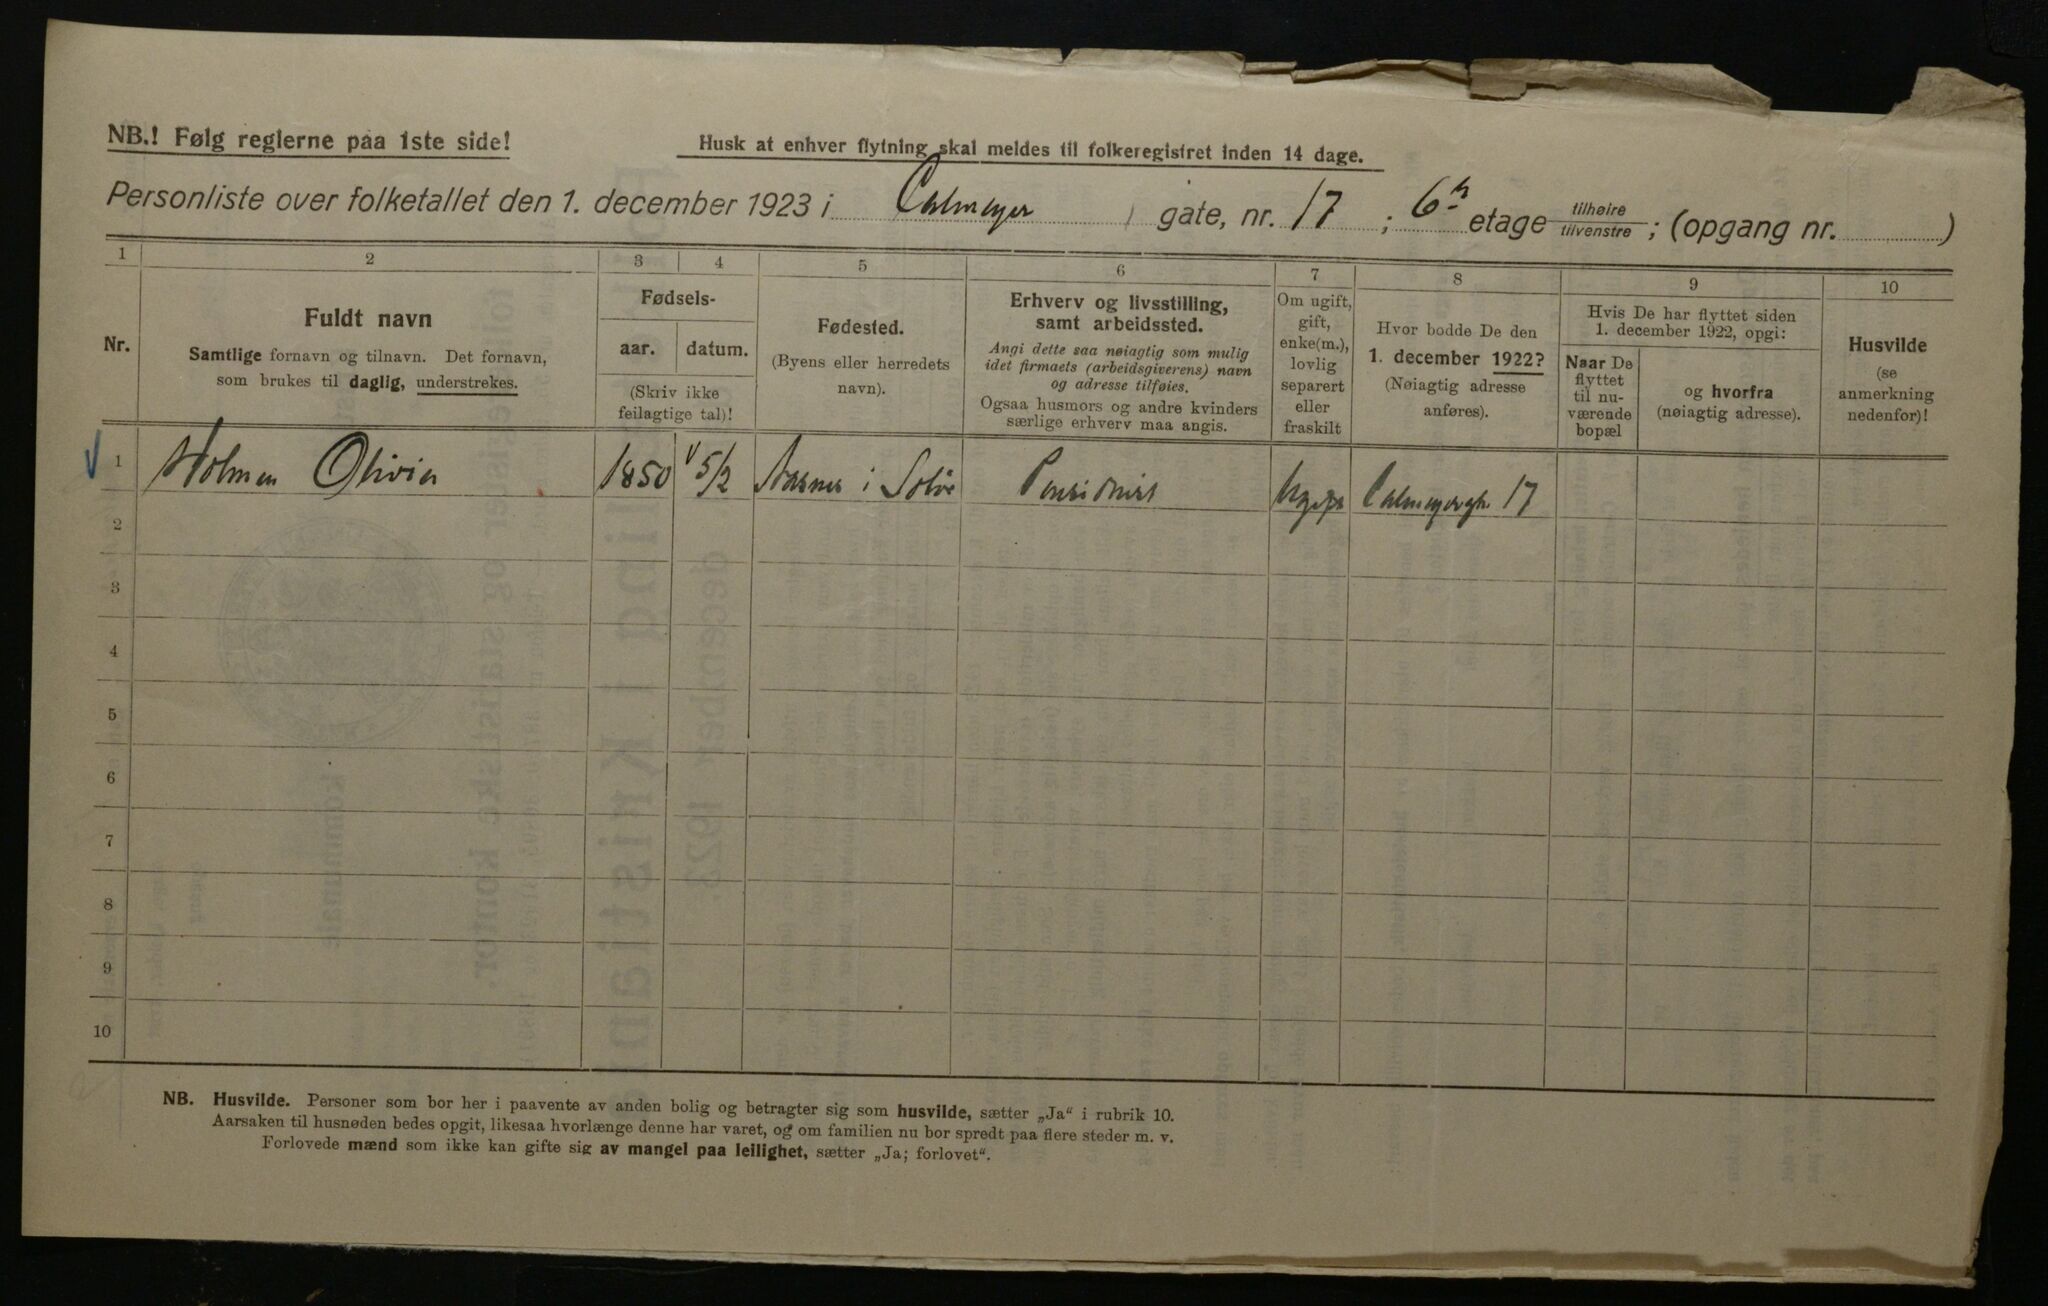 NB.! Følg reglerne paa 1ste side!
Husk at enhver flytning skal meldes til folkeregistret inden 14 dage.
Personliste over folketallet den 1. december 1923 i Calmeyer gate, nr. 17 ; 6te etage tilhøire tilvenstre ; (opgang nr. )
1 2 3 4 5 6 7 8 9 10
Nr.
Fuldt navn
Samtlige fornavn og tilnavn. Det fornavn,
som brukes til daglig, understrekes.
Fødsels-
aar. datum.
(Skriv ikke
feilagtige tal)!
Fødested.
(Byens eller herredets
navn).
Erhverv og livsstilling,
samt arbeidssted.
Angi dette saa nøiagtig som mulig
idet firmaets (arbeidsgiverens) navn
og adresse tilføies.
Ogsaa husmors og andre kvinders
særlige erhverv maa angis.
Om ugift,
gift,
enke(m.),
lovlig
separert
eller
fraskilt
Hvor bodde De den
1. december 1922?
(Nøiagtig adresse
anføres).
Hvis De har flyttet siden
1. december 1922, opgi:
Naar De
flyttet
til nu-
værende
bopæl
og hvorfra
(nøiagtig adresse).
Husvilde
(se
anmerkning
nedenfor)!
1 Holmen Olivia 1850 5/2 Aasnes i Solør Pensionist Ugift Calmeyergt. 17
2
3
4
5
6
7
8
9
10
NB. Husvilde. Personer som bor her i paavente av anden bolig og betragter sig som husvilde, sætter „Ja“ i rubrik 10.
Aarsaken til husnøden bedes opgit, likesaa hvorlænge denne har varet, og om familien nu bor spredt paa flere steder m. v.
Forlovede mænd som ikke kan gifte sig av mangel paa leilighet, sætter „Ja; forlovet“.